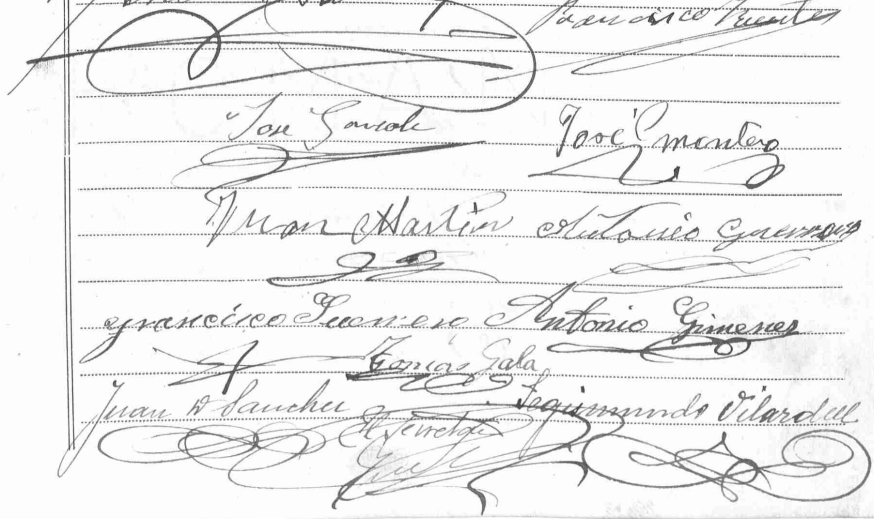 Francisco Fuentes
Jose
José Montero
Juan Martin Antonio Guerrero
Francisco Guerrero Antonio Gimenes
Tomás Gala
Juan D Sanchez Segismundo Vilardell
El Secretario